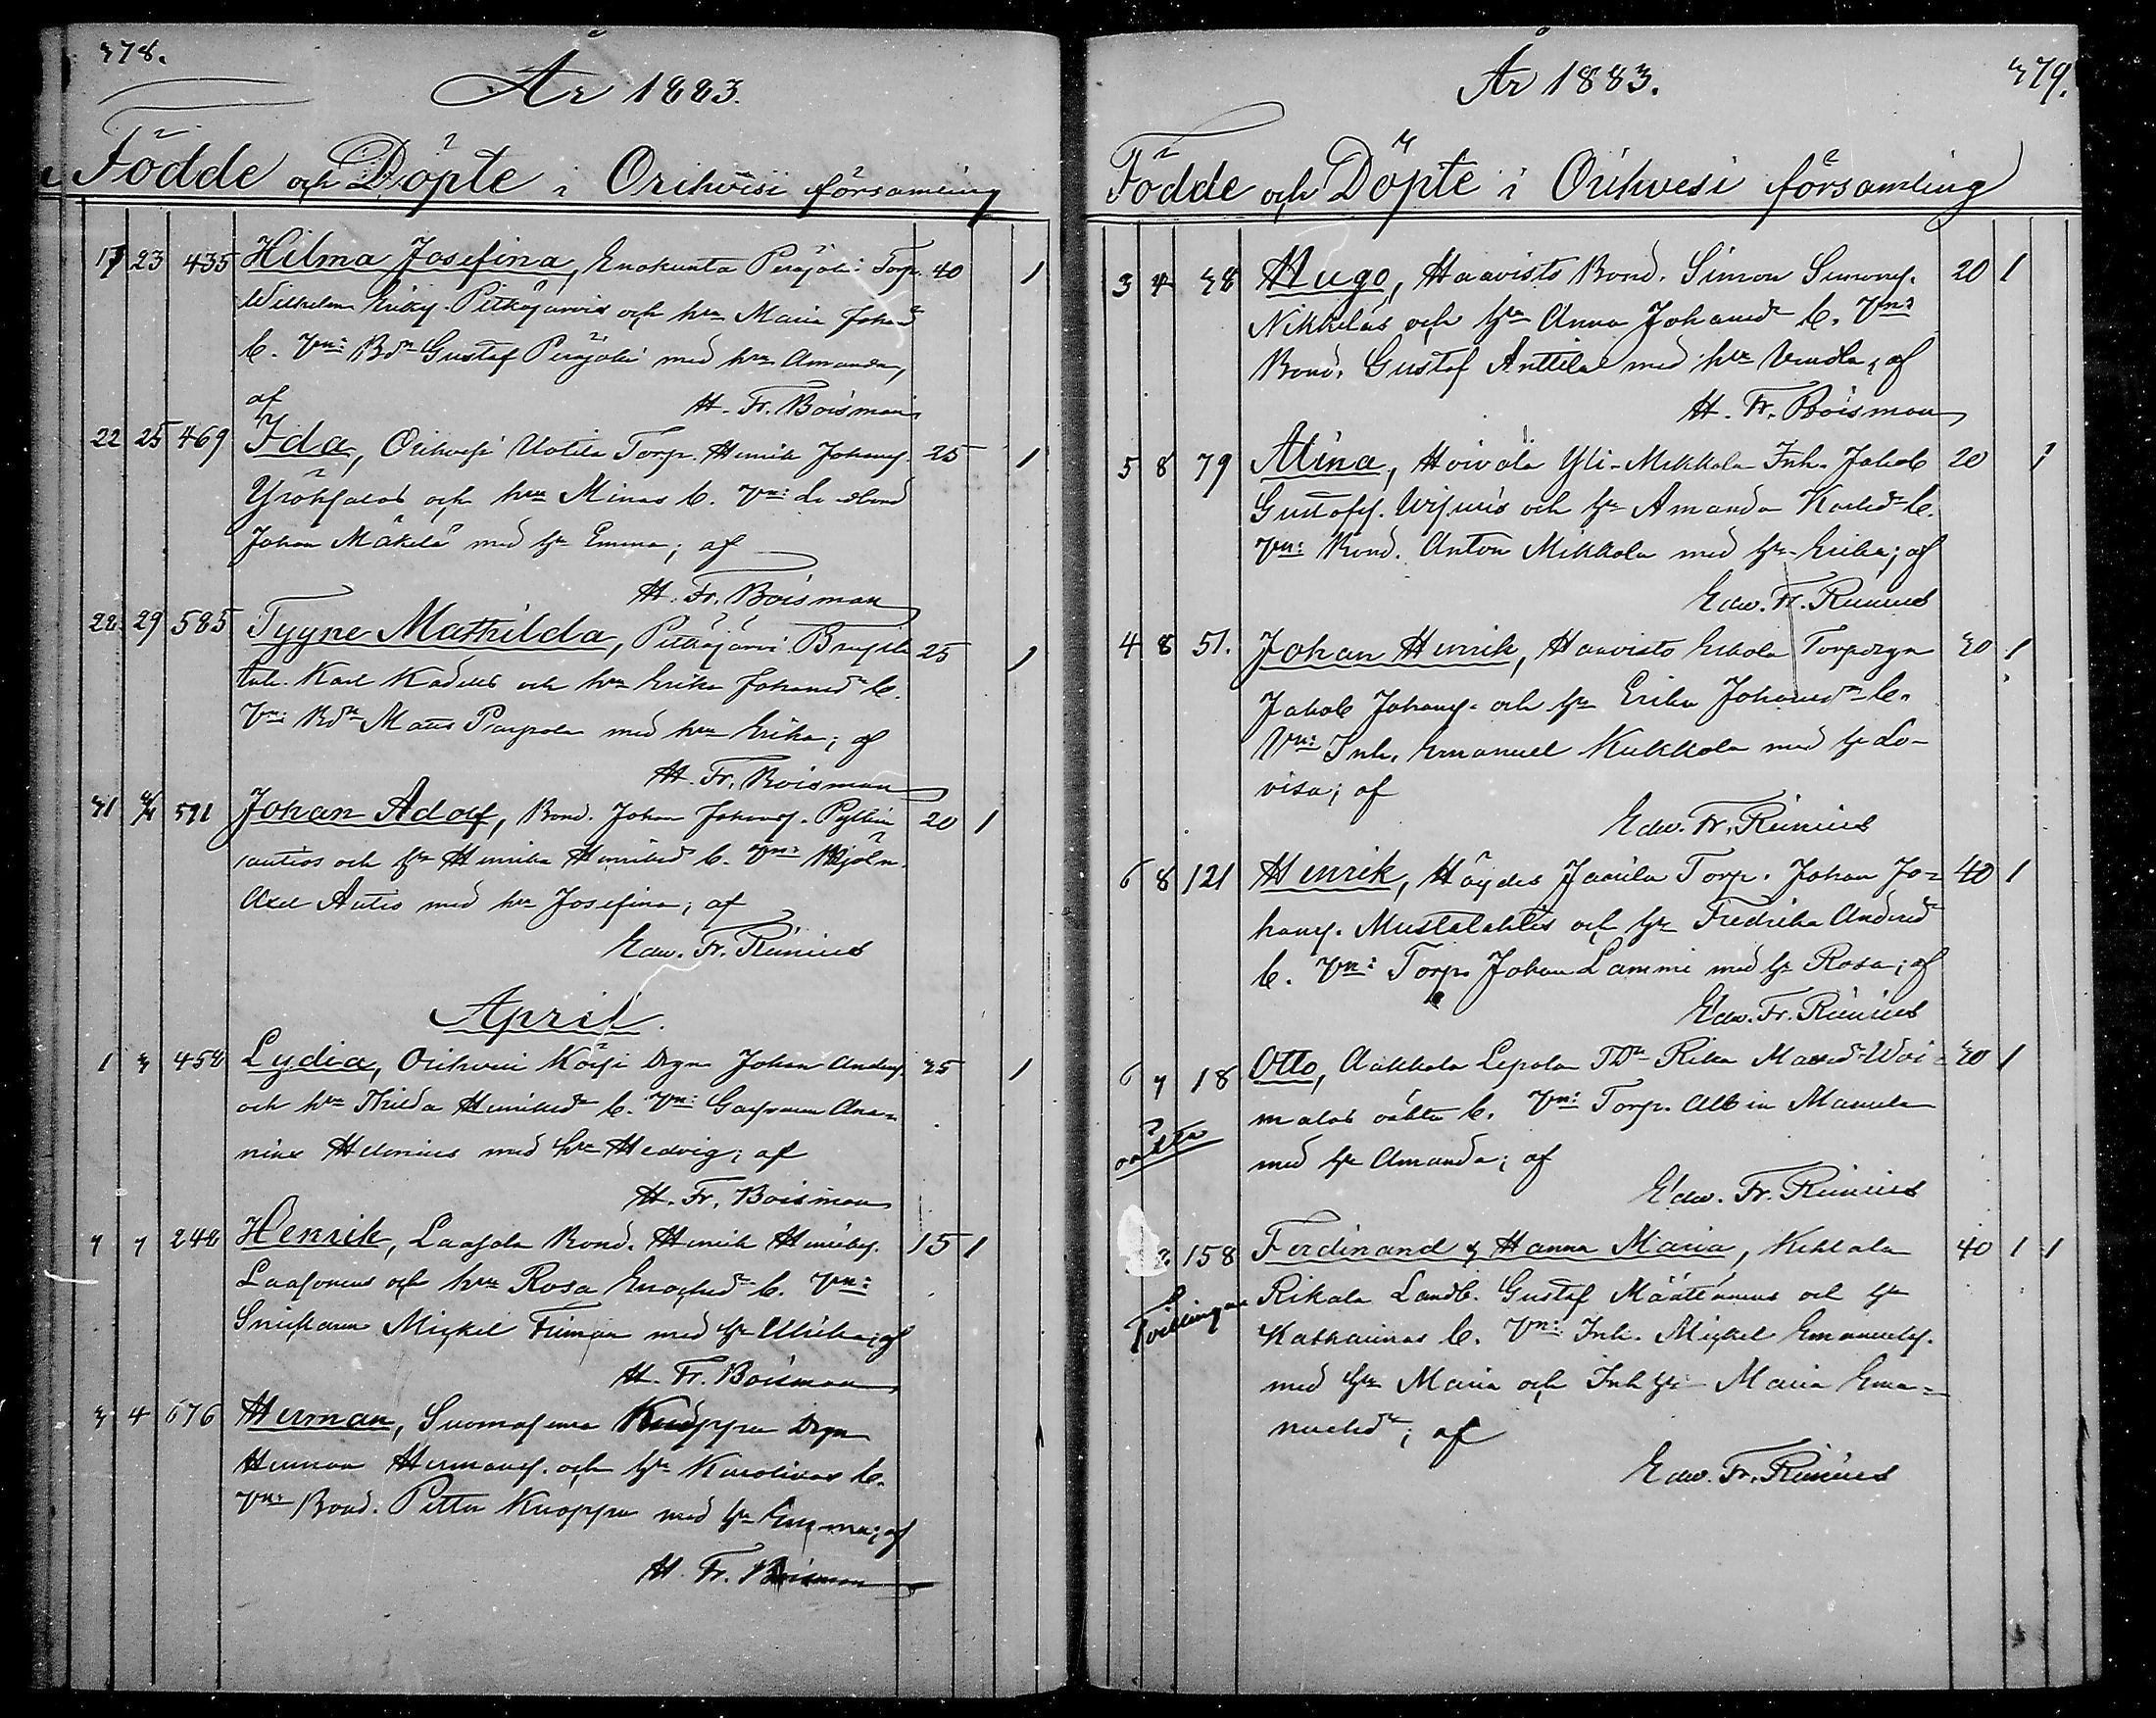 378.
År 1883.
Födde och Döpte i Orihvesi församling
17 23 435 Hilma Josefina, Enokunta Peräjoki Torp. 40 1
Wilhelm Eriks. Pitkäjärvis och hu Maria Johand
b. Vn: Bdn Gustaf Perajoki med hu Amanda,
af
H. Fr. Boisman
22 25 469 Ida, Orihvesi Uotila Torp. Henrik Johans. 25 1
och hu Minas b. Vn: Landbond
Johan Mäkelä med hu Emma; af
H. Fr. Boisman
22 29 585 Tyyne Mathilda, Pitkäjärvi Bruks 25 1
Karl och hu Erika Johansdr b.
Vn: Bdn Matts med hu Erika; af
H. Fr. Boisman
31 591 Johan Adolf, Bond. Johan Johans. 20 1
och hu Henrika Henriksdr b. Vn: Mjöln.
Axel Autio med hu Josefina; af
Edw. Fr. Rinnius
April.
1 3 458 Lydia, Orihvesi Drgn Johan Anders. 35 1
och hu Thilda Henriksdr b. Vn: Garfvaren Ana-
nias Helenius med hu Hedvig; af
H. Fr. Boisman
7 7 248 Henrik, Laasola Bond. Henrik Henriks. 15 1
Laasonens och hu Rosa Enochsdr b. Vn:
Snickaren Mickel med hu Ulrika; af
H. Fr. Boisman
3 4 676 Herman, Knoppu Drgn
Herman Hermans. och hu Karolinas b.
Vn: Bond. Petter Knoppu med hu Emma; af
H. Fr. Boisman
År 1883. 379.
Födde och Döpte i Orihvesi församling
3 4 38 Hugo, Haavisto Bond. Simon Simons. 20 1
Nikkiläs och hu Anna Johansdr b. Vn:
Bond. Gustaf Anttila med hu Vendla; af
H. Fr. Boisman
5 8 79 Alina, Hoivala Yli-Mikkola Inh. Jakob 20 1
Gustafs. och hu Amanda Karlsdr b.
Vn: Bond. Anton Mikkola med hu Erika; af
Edw. Fr. Rinnius
4 8 51. Johan Henrik, Haavisto Eskola Torpdrgn 30 1
Jakob Johans. och hu Erika Johansdr b.
Vn: Inh. Emanuel Kukkola med hu Lo-
visa; af
Edw. Fr. Rinnius
6 8 121 Henrik, Jaarila Torp. Johan Jo- 40 1
hans. Mustalahtis och hu Fredrika Andersdr
b. Vn: Torp. Johan Lammi med hu Rosa; af
Edw. Fr. Rinnius
6 7 18 Otto, Aakkola Lepola TDr Rika Mattsdr Voi- 30 1
malas oäkta b. Vn: Torp. Albin Mannila
oäkta
med hu Amanda; af
Edw. Fr. Rinnius
158 Ferdinand & Hanna Maria, Keklala 40 1 1
Tvillingar
Rikala Landb. Gustaf Määttänens och hu
Katharinas b. Vn: Inh. Mickel Emanuels.
med hu Maria och Inh hu Maria Ema-
nuelsdr; af
Edw. Fr. Rinnius